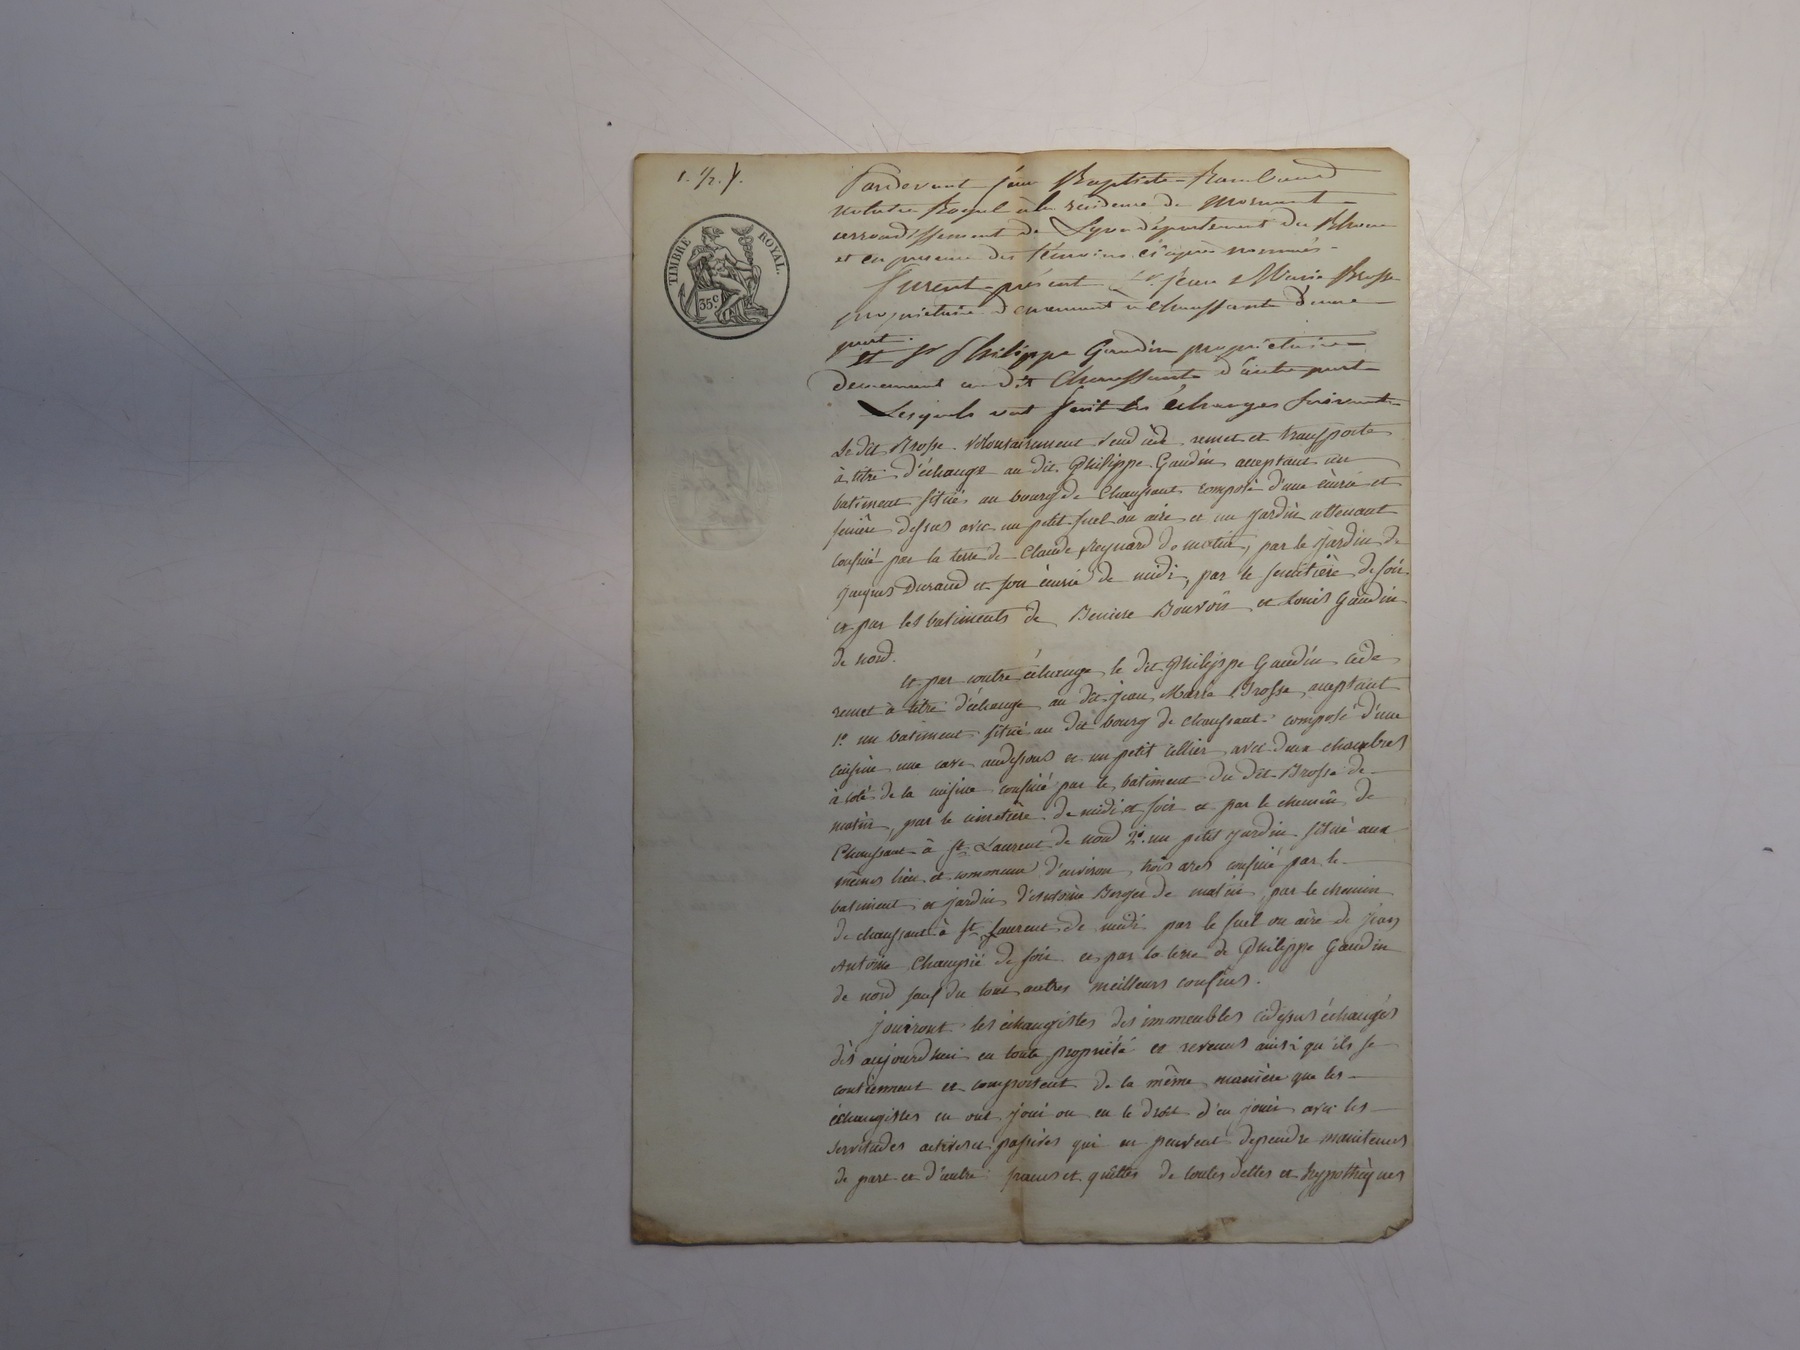 1. 1/2.
TIMBRE ROYAL.
35c
Pardevant jean Baptiste Rambaud
notaire Royal à la residence de Mornant
arrondissement de Lyon département du Rhone
et en presence des témoins ci après nommés.
Furent présent Sr. jean Marie Brosse
propriétaire demeurant à Chaussante d'une
part.
Et Sr Philippe Gaudin propriétaire
demeurant au dit Chaussante d'autre part
Lesquels ont fait les échanges suivants
Le dit Brosse volontairement vend cède remet et transporte
à titre d'échange au dit Philippe Gaudin acceptant un
batiment situé au bourg de Chaussant composé d'une écurie et
feniere dessus avec un petit suel ou aire et un jardin attenant
confiné par la terre de Claude Reynard de matin, par le jardin de
jacques Durand et son écurie de midi, par le de soir
et par les batiments de Bouvois et Louis Gaudin
de nord.
et par contre échange le dit Philippe Gaudin cède
remet à titre d'échange au dit jean Marie Brosse acceptant
1o. un batiment situé au dit bourg de Chaussant composé d'une
cuisine une cave audessous et un petit cellier avec deux chambres
à coté de la cuisine confiné par le batiment du dit Brosse de
matin, par le cimetière de midi et soir et par le chemin de
Chaussant à St Laurent de nord 2o. un petit jardin situé aux
mêmes lieu et commune d'environ trois ares confiné par le
batiment et jardin d'Antoine Berger de matin, par le chemin
de chaussant à St Laurent de midi par le suel ou aire de jean
Antoine de soir et par la terre de Philippe Gaudin
de nord sauf du tout autres meilleurs confins.
jouiront les échangistes des immeubles cidessus échangés
dès aujourdhui en toute propriété et revenus ainsi qu'ils se
contiennent et comportent de la même manière que les
échangistes en ont joui ou eu le droit d'en jouir avec les
servitudes actives et passives qui en peuvent dependre maintenus
de part et d'autre francs et quittes de toutes dettes et hypothèques